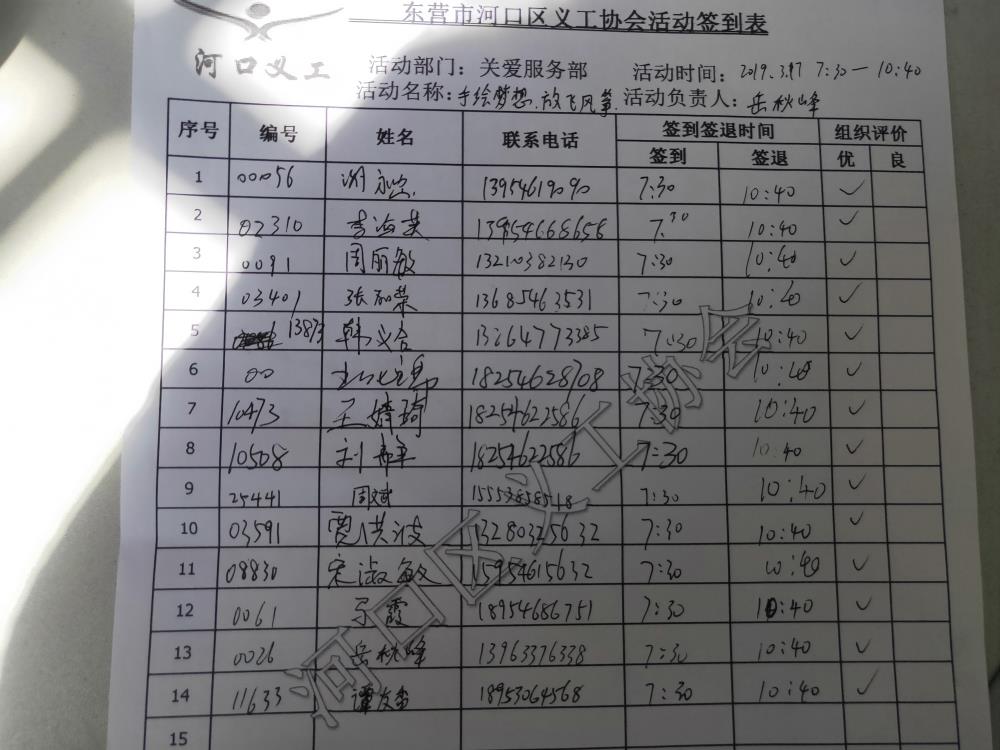 东营市河口区义工协会活动签到表
河口义工
活动部门：关爱服务部 活动时间：2019.3.17 7:30—10:40
活动名称：手绘梦想.放飞风筝. 活动负责人：岳秋峰
序号 编号 姓名 联系电话 签到签退时间 组织评价
签到 签退 优 良
1 00056 13954619090 7:30 10:40 ✓
2 02310 李海英 13954668656 7:30 10:40 ✓
3 0091 周丽敏 13210382130 7:30 10:40 ✓
4 03401 张和荣 13685463531 7:30 10:40 ✓
5 13873 韩义合 13264773385 7:30 10:40 ✓
6 00 18254628708 7:30 10:40 ✓
7 10473 王婧琦 18254622586 7:30 10:40 ✓
8 10508 18254622586 7:30 10:40 ✓
9 25441 周斌 15553858518 7:30 10:40 ✓
10 03591 贾洪波 13280325632 7:30 10:40 ✓
11 08830 宋淑敏 15954615632 7:30 10:40 ✓
12 0061 于霞 18954686751 7:30 10:40 ✓
13 0026 岳秋峰 13963376338 7:30 10:40 ✓
14 11633 谭友香 18953064568 7:30 10:40 ✓
15
河口区义工协会